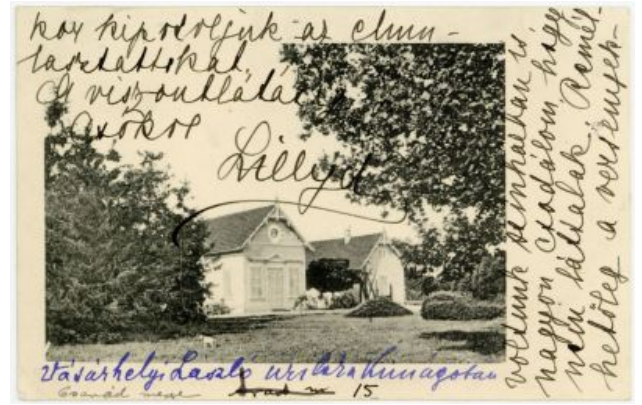 kor kipótoljuk az elmu-
lasztottakat.
A viszontlátás
csókol
Lillyd
voltunk színházban is,
nagyon csodálom hogy
nem láttalak. Remél-
hetőleg a versenyek-
Vásárhelyi László urilaka Kunágotán
Csanád megye Arad m 15